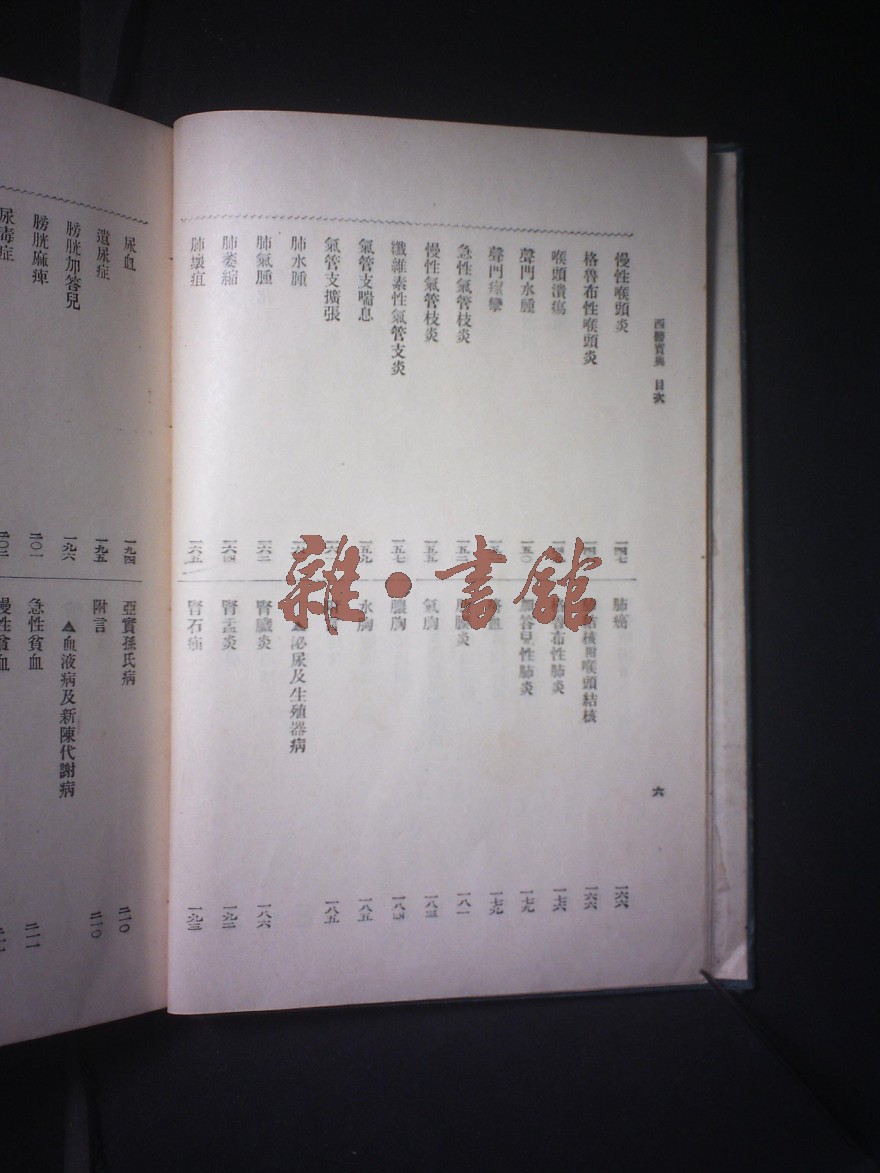 西醫寶典 目次
六
慢性喉頭炎 一四七
格魯布性喉頭炎
喉頭潰瘍
聲門水腫 一五〇
聲門痙攣
急性氣管枝炎 一五二
慢性氣管枝炎 一五五
纖維素性氣管支炎 一五七
氣管支喘息 一五九
氣管支擴張
肺水腫
肺氣腫 一六二
肺萎縮 一六四
肺壞疽 一六五
肺癌 一六六
結核附喉頭結核 一六六
格魯布性肺炎 一七六
加答兒性肺炎 一七九
一七九
炎 一八一
氣胸 一八三
膿胸 一八四
水胸 一八五
一八五
▲泌尿及生殖器病
腎臟炎 一八六
腎盂炎 一九二
腎石疝 一九三
尿血 一九四
遺尿症 一九五
膀胱加答兒 一九六
膀胱麻痺 二〇一
尿毒症 二〇二
亞實孫氏病 二一〇
附言 二一〇
▲血液病及新陳代謝病
急性貧血 二一一
慢性貧血
雜·書館